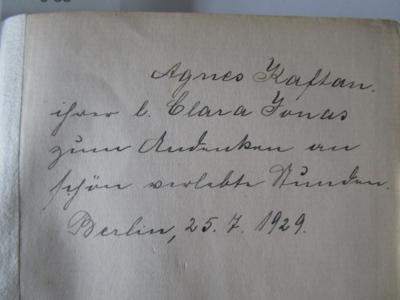 Agnes Kaftan.
ihrer l. Clara Jonas
zum Andenken an
schön verlebte Stunden.
Berlin, 25. 7. 1929.